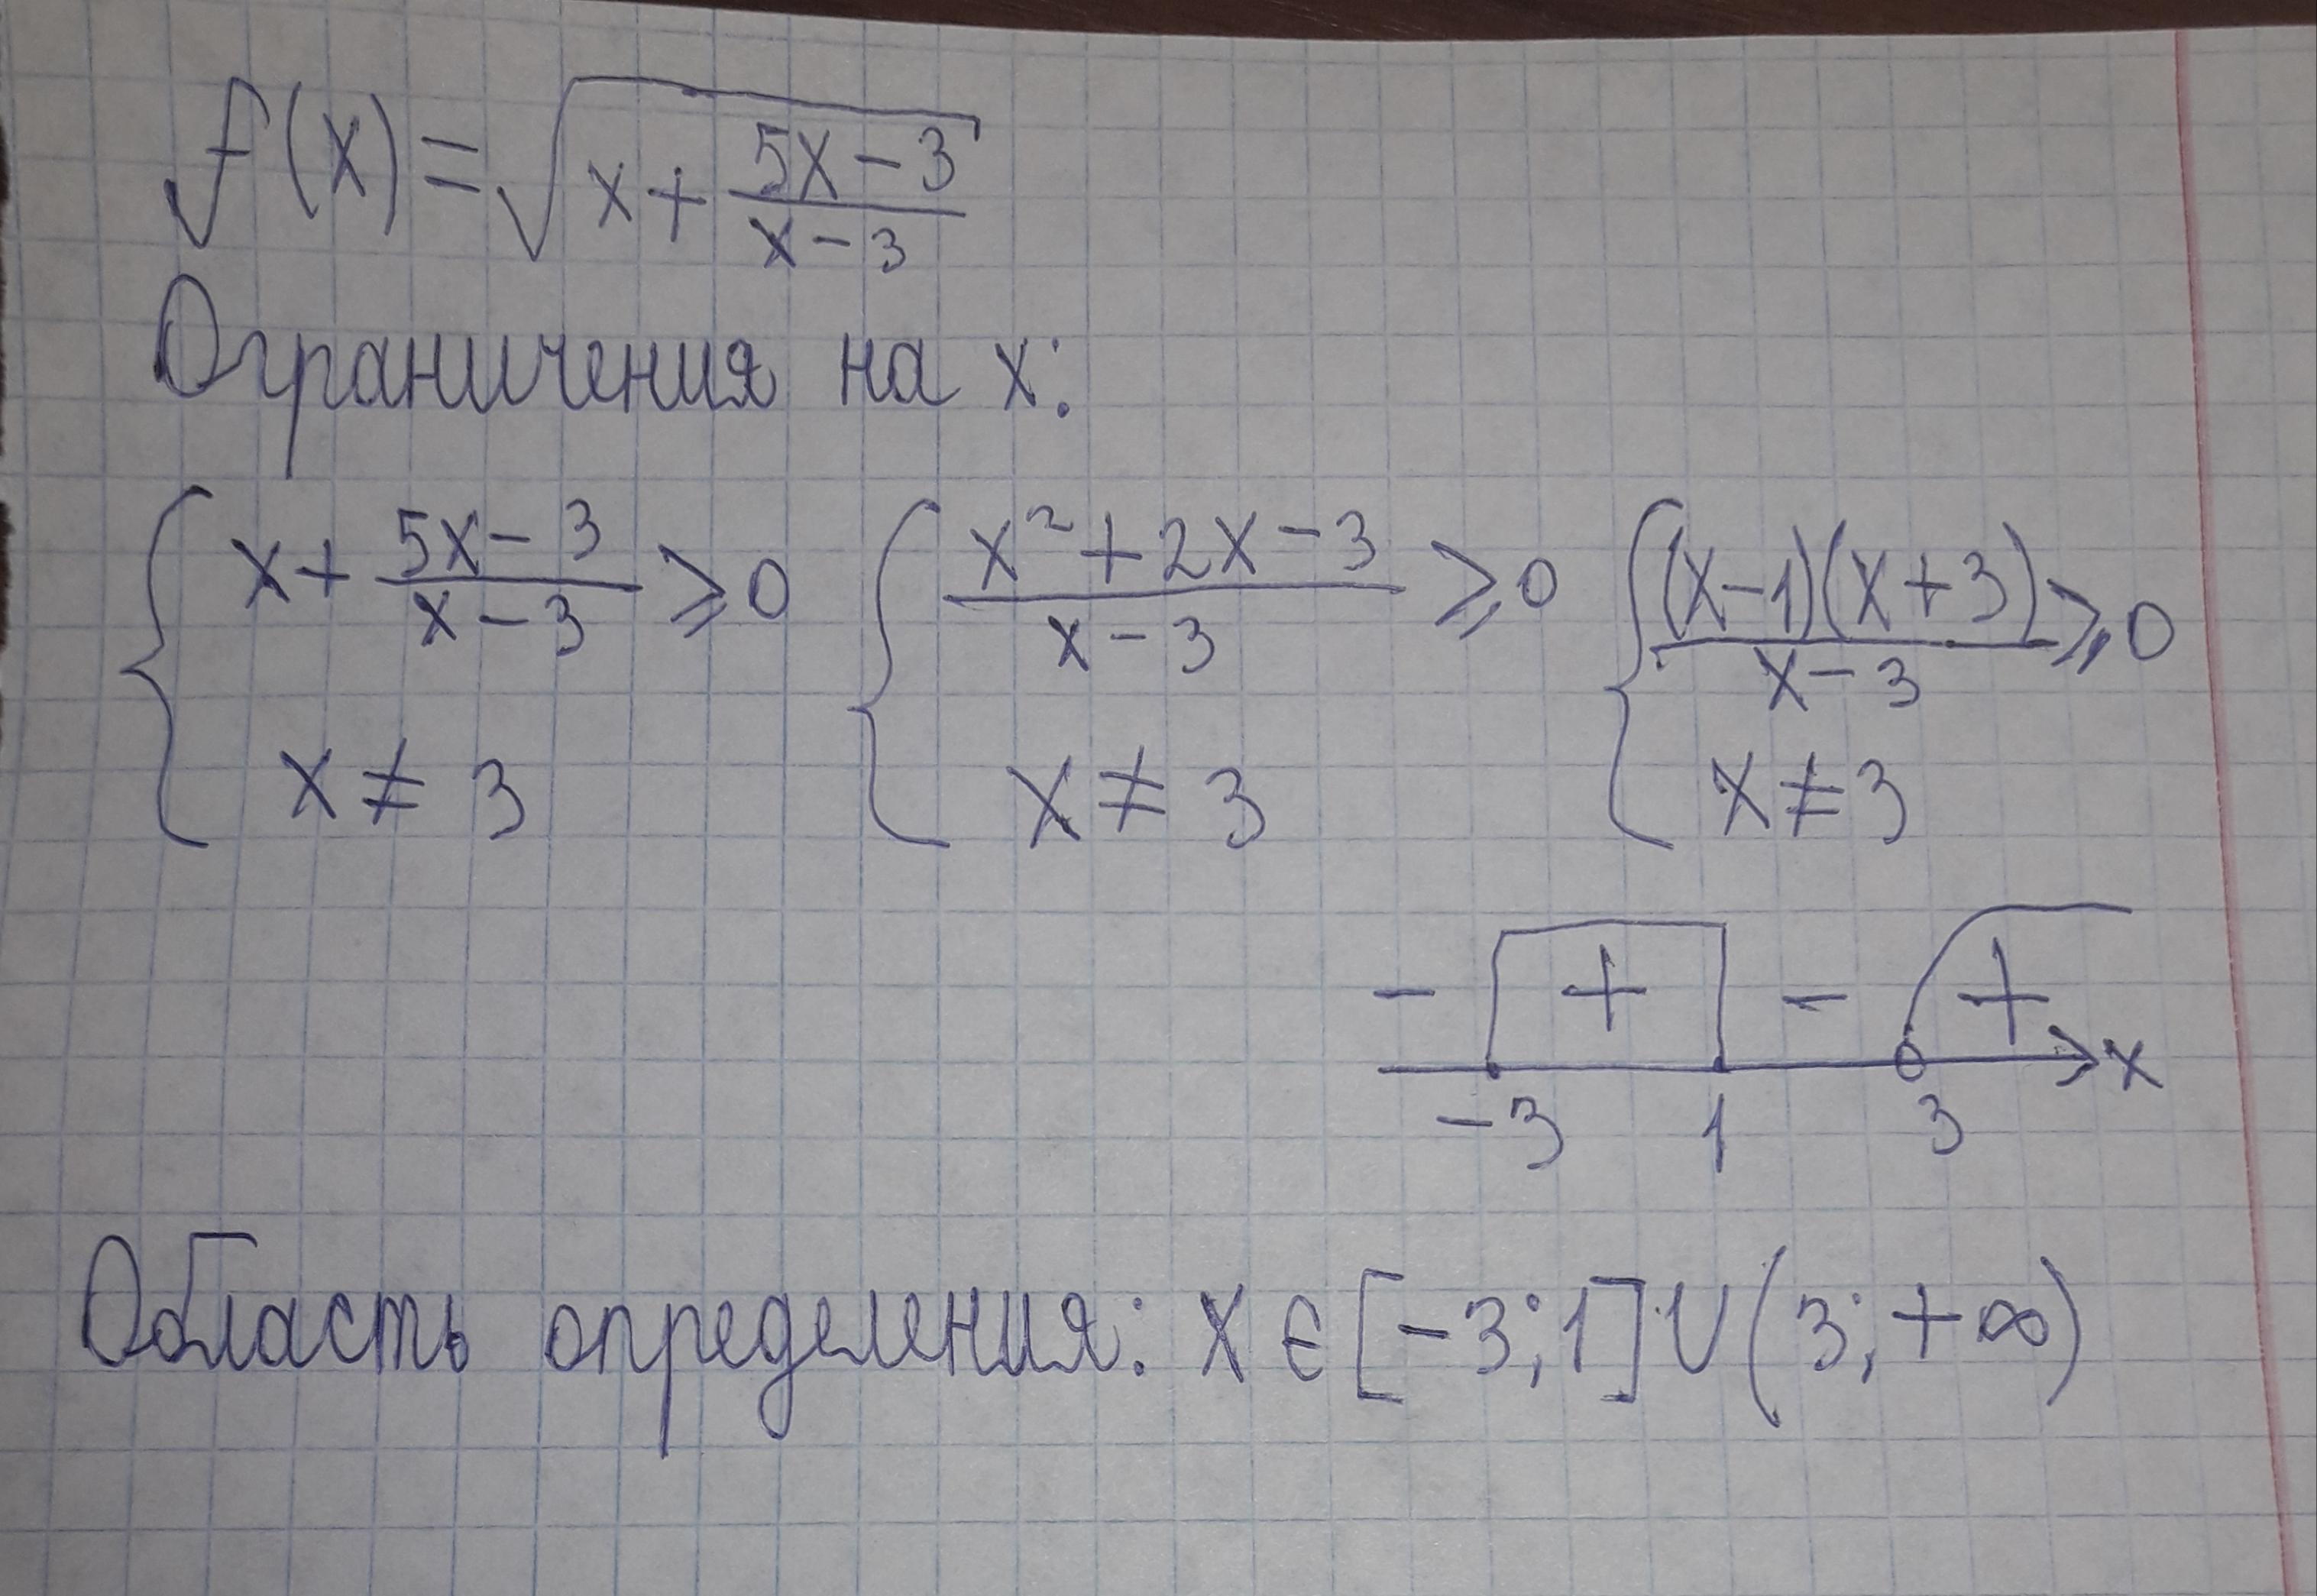 f(x) = √(x + (5x - 3)/(x - 3))
Ограничения на x:
{ x + (5x - 3)/(x - 3) ⩾ 0 { (x² + 2x - 3)/(x - 3) ⩾ 0 { ((x - 1)(x + 3))/(x - 3) ⩾ 0
x ≠ 3 x ≠ 3 x ≠ 3
- + - +
-3 1 3 x
Область определения: x ∈ [-3; 1] ∪ (3; +∞)